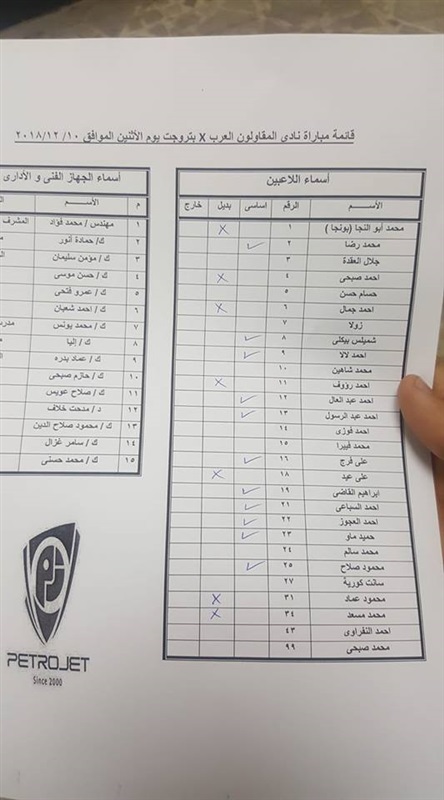 قائمة مباراة نادى المقاولون العرب X بتروجت يوم الأثنين الموافق ١٠/ ١٢/ ٢٠١٨
أسماء اللاعبين
الأســـــم الرقم اساسى بديل خارج
محمد أبو النجا (بونجا ) ١ X
محمد رضا ٢ ✓
جلال العقدة ٣
احمد صبحى ٤ X
حسام حسن ٥
احمد جمال ٦ X
زولا ٧
شميلس بيكلى ٨ ✓
احمد لالا ٩ ✓
محمد شاهين ١٠
احمد رؤوف ١١ X
احمد عبد العال ١٢ ✓
احمد عبد الرسول ١٣ ✓
احمد فوزى ١٤
محمد فييرا ١٥
على فرج ١٦ ✓
على عيد ١٨ X
ابراهيم القاضى ١٩ ✓
احمد السباعى ٢١ ✓
احمد العجوز ٢٢ ✓
حميد ماو ٢٣ ✓
محمد سالم ٢٤
محمود صلاح ٢٥ ✓
سانت كورية ٢٧
محمود عماد ٣١ X
محمد مسعد ٣٤ X
احمد النفراوى ٤٣
محمد صبحى ٩٩
أسماء الجهاز الفنى و الأدارى
م الأســـم
١ مهندس / محمد فؤاد المشرف
٢ ك/ حمادة أنور
٣ ك / مؤمن سليمان
٤ ك / حسن موسى
٥ ك / عمرو فتحى
٦ ك / احمد شعبان
٧ ك / محمد يونس
٨ ك / إليا
٩ ك / عماد بدره
١٠ ك / حازم صبحى
١١ ك / صلاح عويس
١٢ د / مدحت خلاف
١٣ ك / محمود صلاح الدين
١٤ ك / سامر غزال
١٥ ك / محمد حسنى
PETROJET
Since 2000